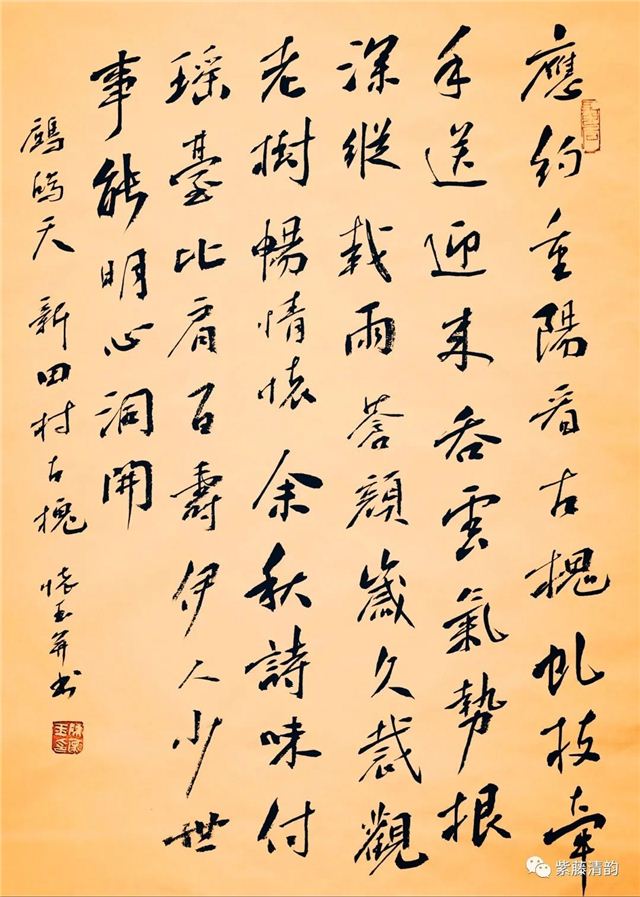 應約重陽看古槐虬枝牽
手送迎来吞雲氣勢根
深縱載雨蒼顔歲久裁觀
老樹暢情懷余秋詩味付
瑶臺比肩百壽伊人少世
事能明心洞開
鷓鴣天 新田村古槐 懷玉并书
紫藤清韵